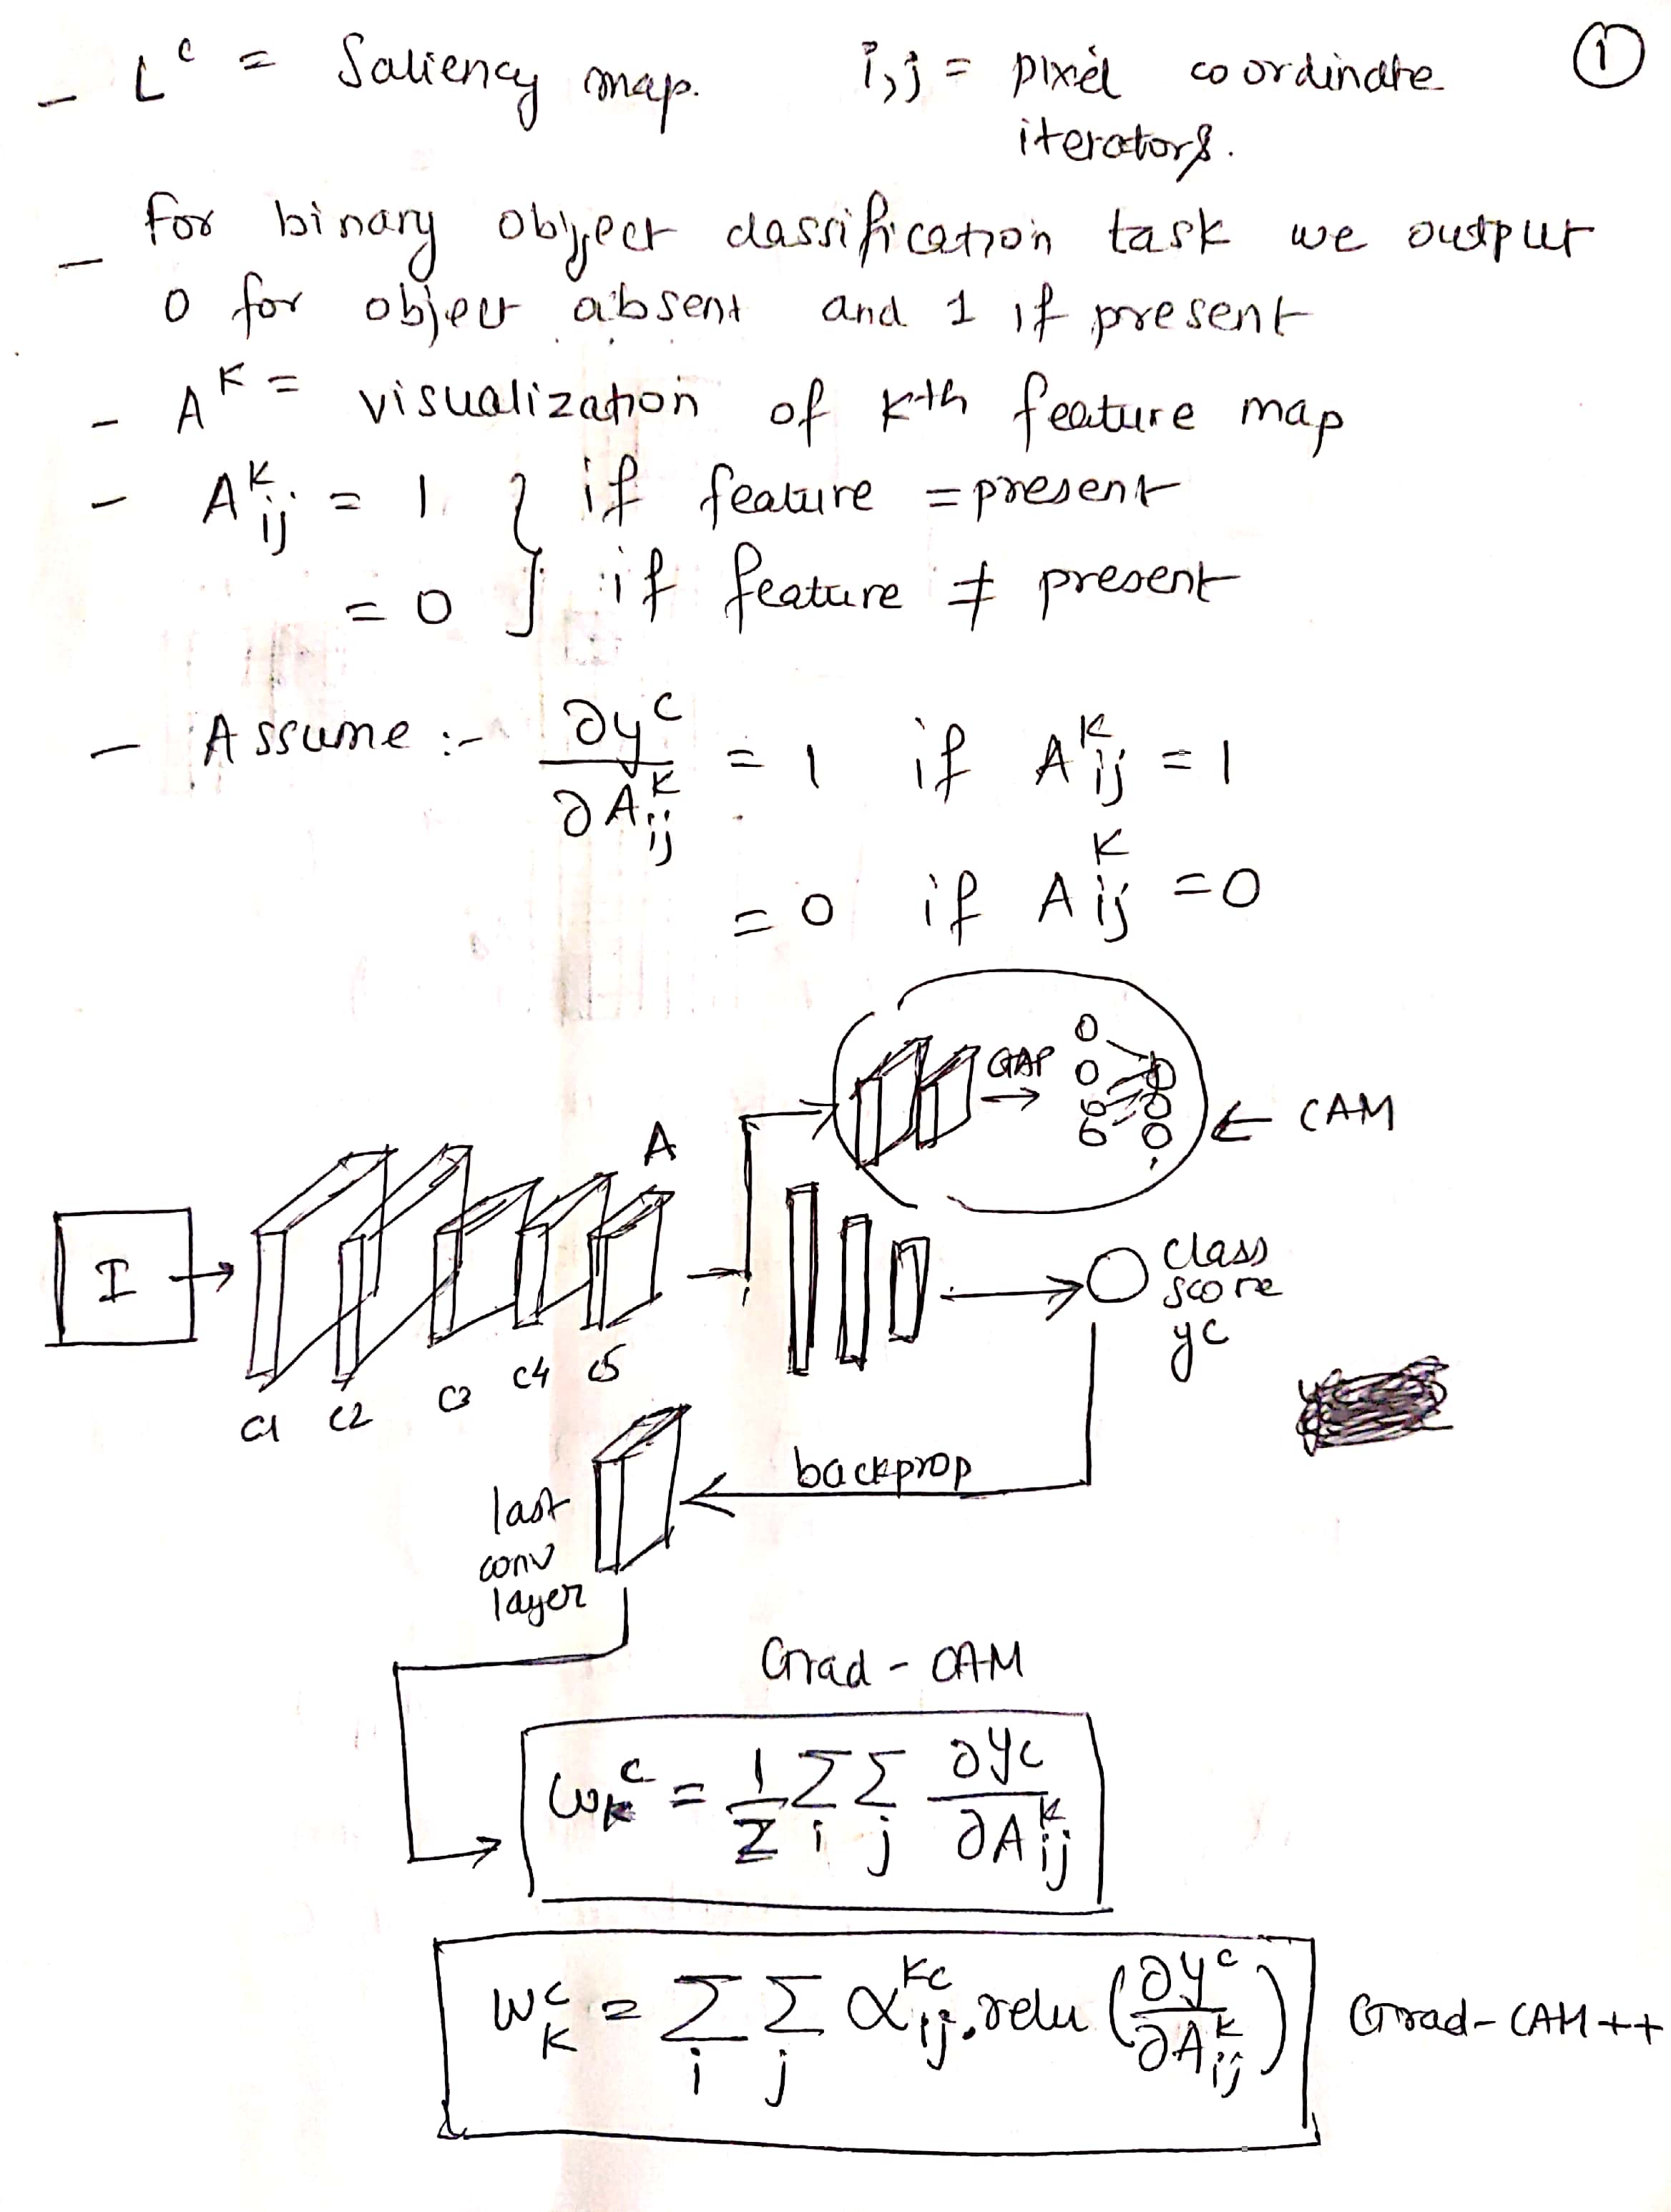 ①
- L^c = Saliency map. i,j = pixel coordinate
iterators.
- for binary object classification task we output
0 for object absent and 1 if present
- A^K = visualization of Kth feature map
- A^K_ij = 1 } if feature = present
= 0 } if feature ≠ present
- Assume :- ∂y^c / ∂A^K_ij = 1 if A^K_ij = 1
= 0 if A^K_ij = 0
GAP
← CAM
A
I
class
score
yc
C1 C2 C3 C4 C5
backprop
last
conv
layer
Grad-CAM
ω^c_k = 1/Z Σ_i Σ_j ∂yc / ∂A^k_ij
W^c_K = Σ_i Σ_j α^Kc_ij . relu (∂y^c / ∂A^K_ij) Grad-CAM++